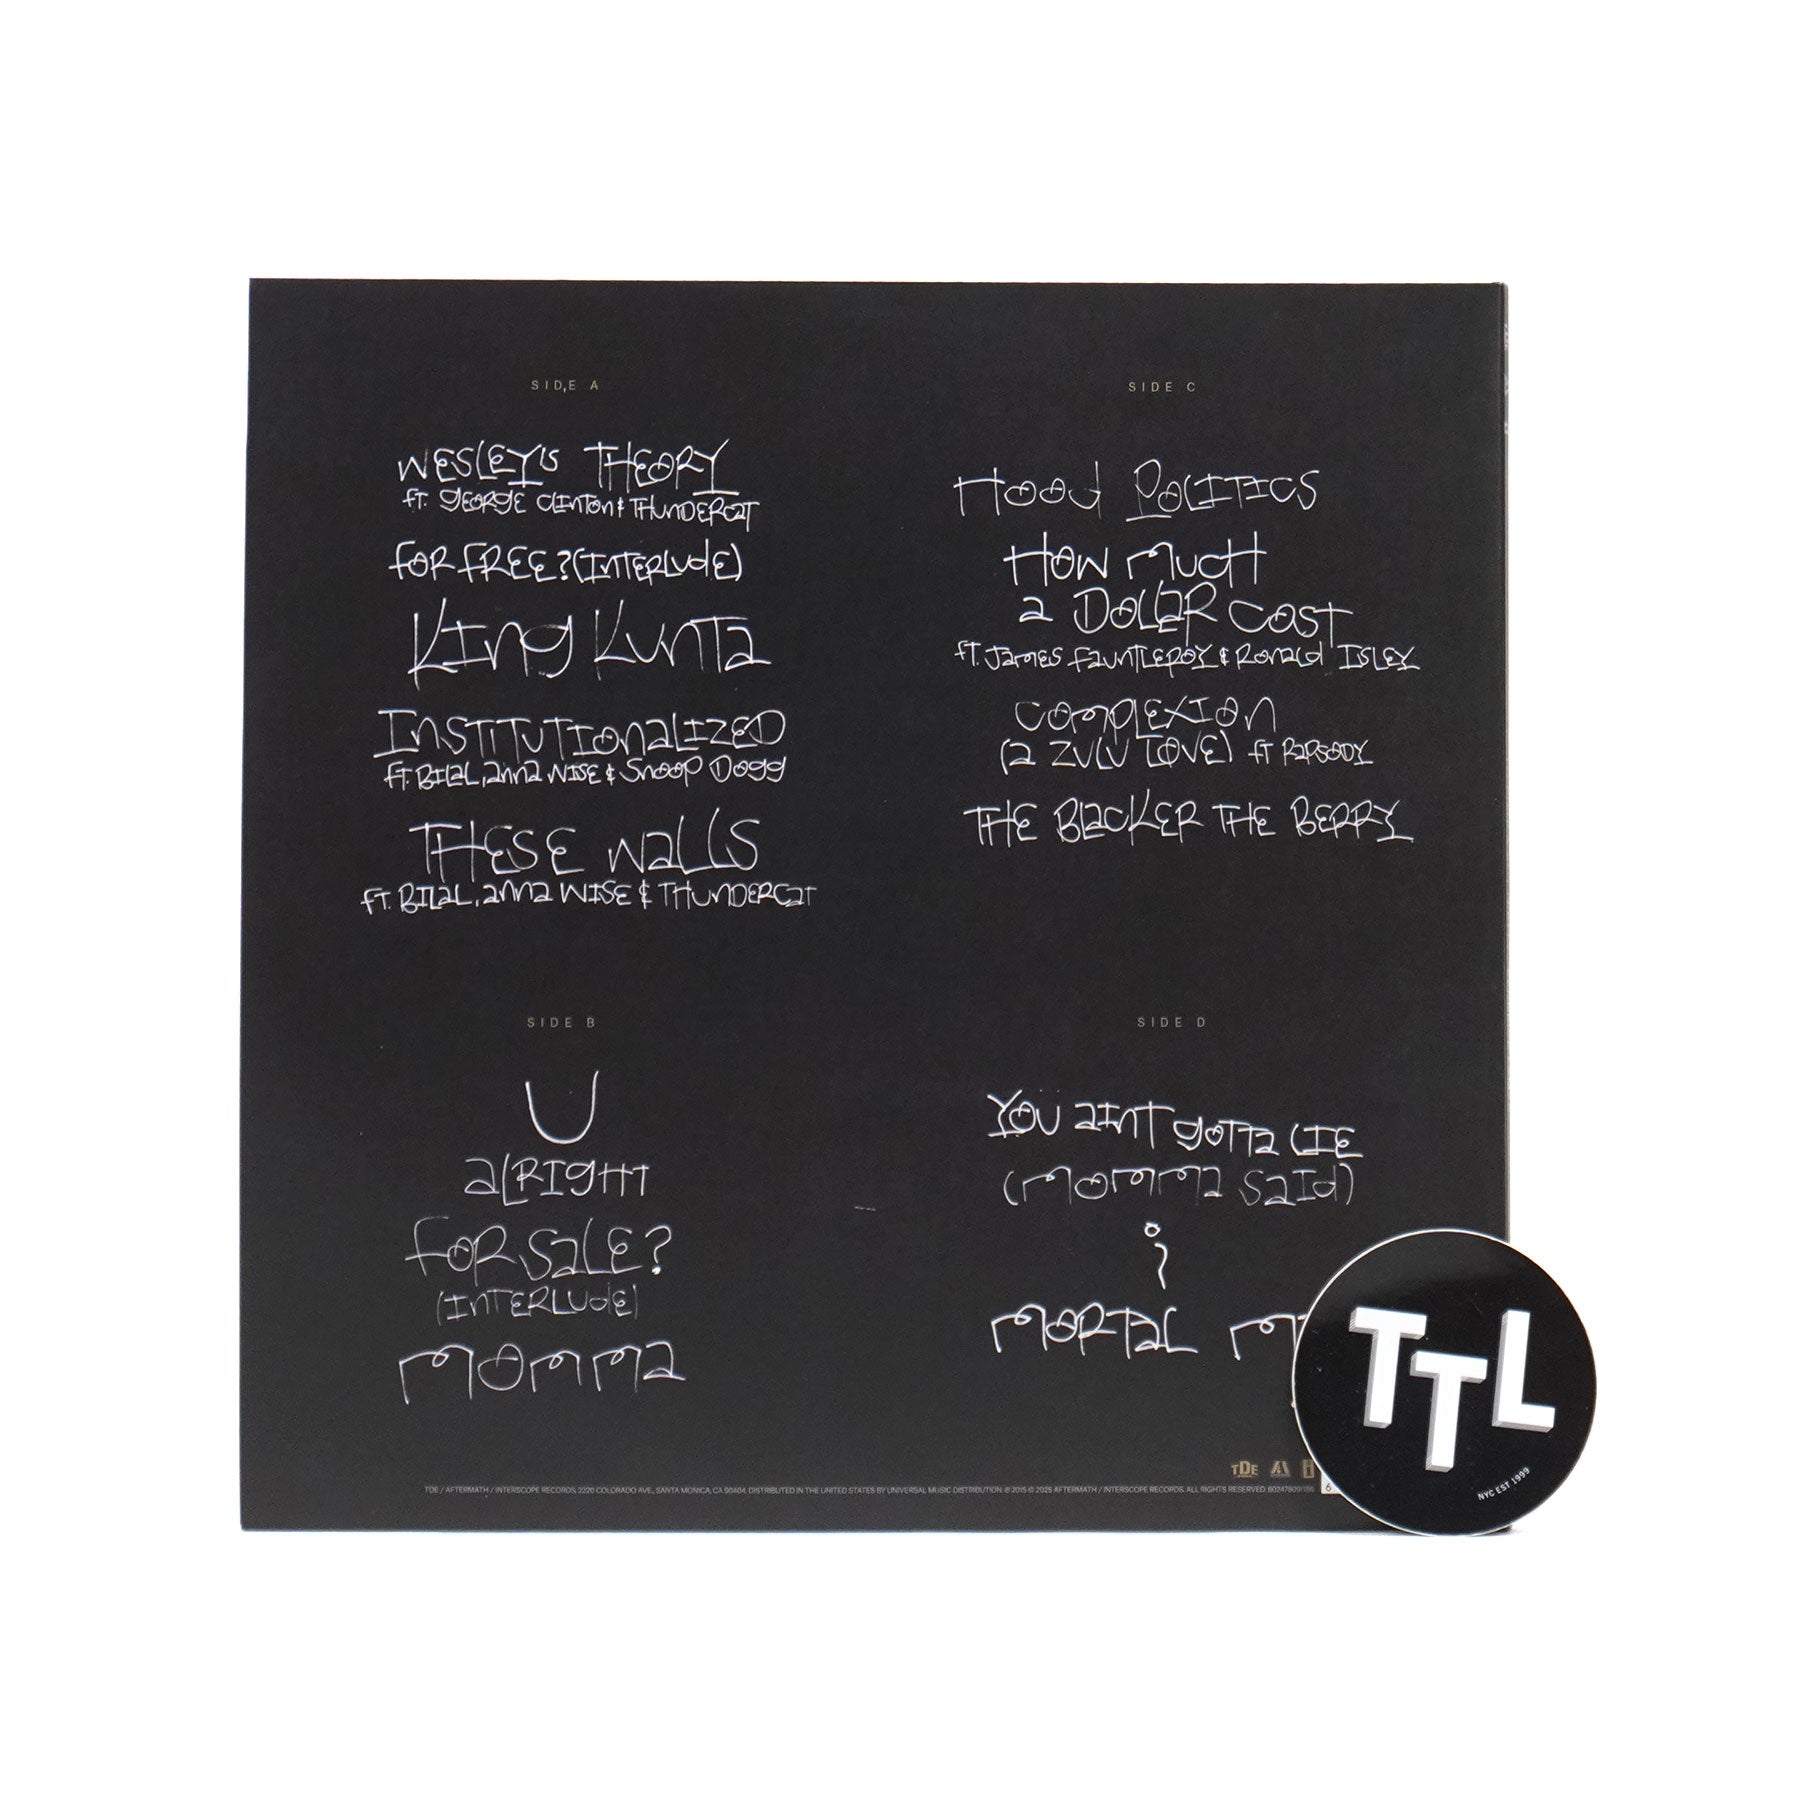 SIDE A
WESLEY'S THEORY
ft. GEORGE CLINTON & THUNDERCAT
FOR FREE? (INTERLUDE)
KING KUNTA
INSTITUTIONALIZED
ft. BILAL, ANNA WISE & SNOOP DOGG
THESE WALLS
ft. BILAL, ANNA WISE & THUNDERCAT
SIDE B
U
ALRIGHT
FOR SALE?
(INTERLUDE)
MOMMA
SIDE C
HOOD POLITICS
HOW MUCH
A DOLLAR COST
ft. JAMES FAUNTLEROY & RONALD ISLEY
COMPLEXION
(A ZULU LOVE) ft RAPSODY
THE BLACKER THE BERRY
SIDE D
YOU AINT GOTTA LIE
(MOMMA SAID)
i
MORTAL M
TDE
TDE / AFTERMATH / INTERSCOPE RECORDS, 2220 COLORADO AVE., SANTA MONICA, CA 90404. DISTRIBUTED IN THE UNITED STATES BY UNIVERSAL MUSIC DISTRIBUTION. ℗ 2015 © 2025 AFTERMATH / INTERSCOPE RECORDS. ALL RIGHTS RESERVED. 602478091186
6
TTL
NYC EST 1999